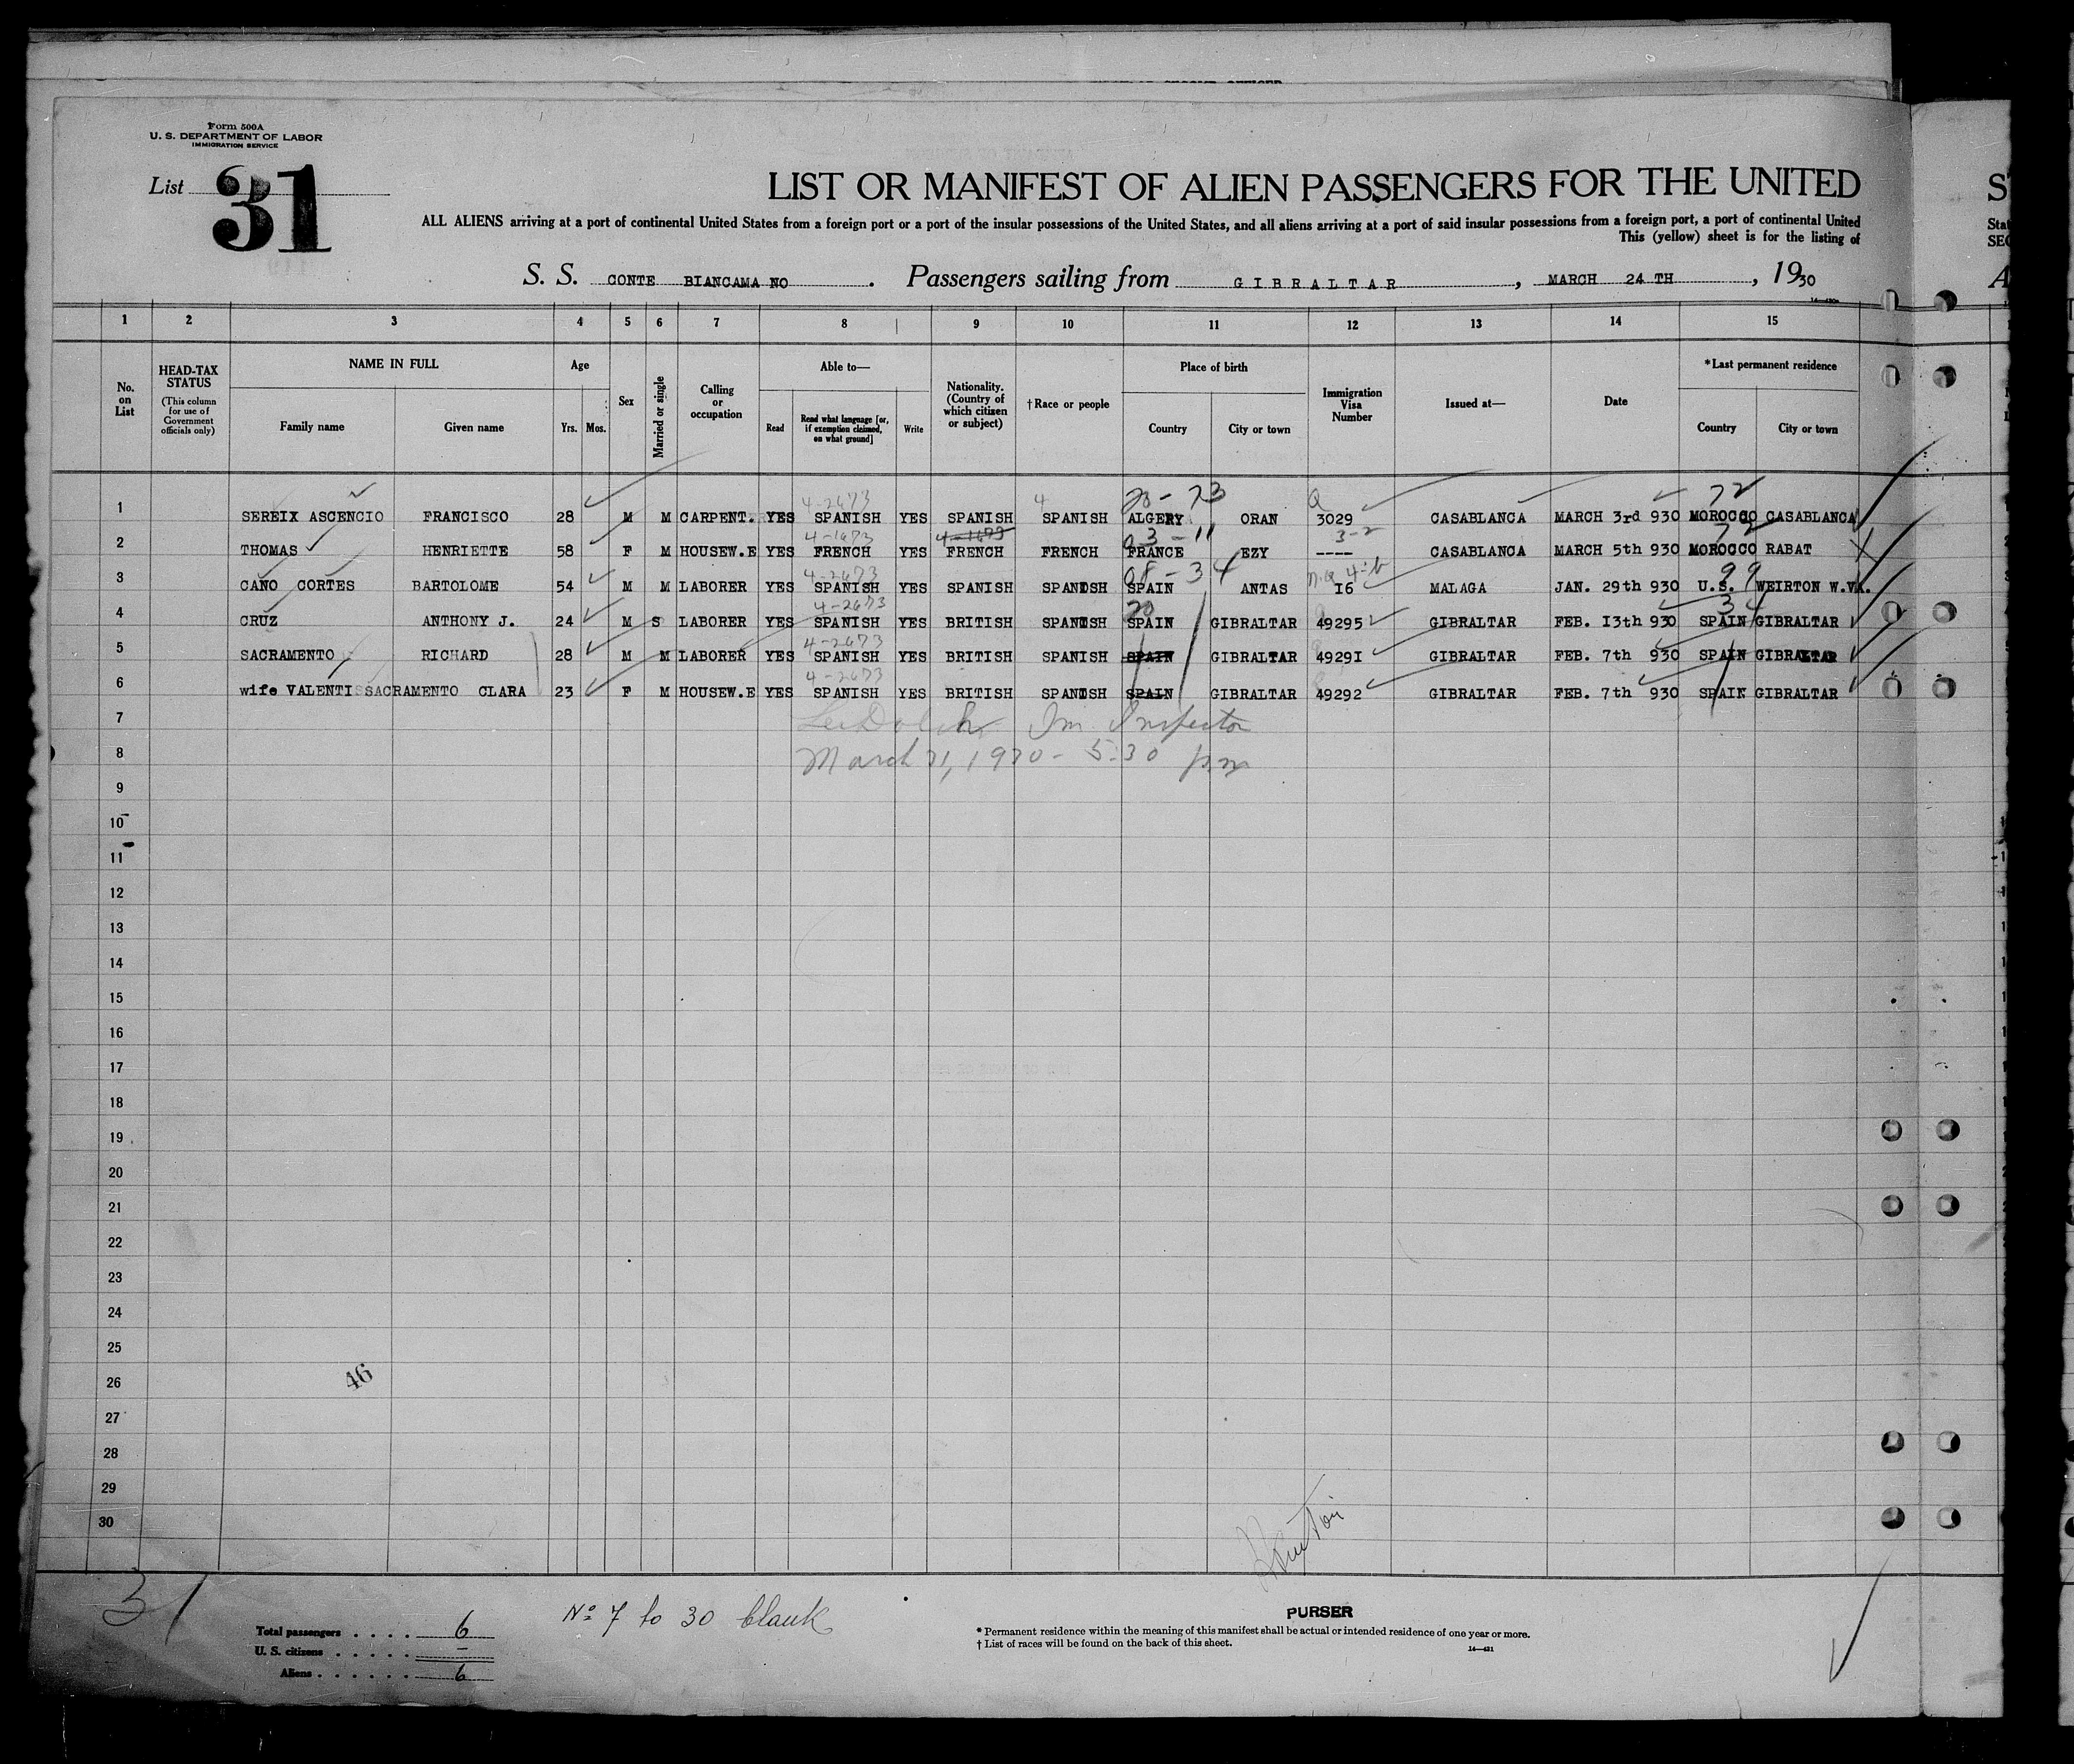 Form 500A
U. S. DEPARTMENT OF LABOR
IMMIGRATION SERVICE
List 31
LIST OR MANIFEST OF ALIEN PASSENGERS FOR THE UNITED
ALL ALIENS arriving at a port of continental United States from a foreign port or a port of the insular possessions of the United States, and all aliens arriving at a port of said insular possessions from a foreign port, a port of continental United
This (yellow) sheet is for the listing of
S. S. CONTE BIANCAMA NO. Passengers sailing from GIBRALTAR, MARCH 24 TH, 1930
1 2 3 4 5 6 7 8 9 10 11 12 13 14 15
No. on List
HEAD-TAX STATUS (This column for use of Government officials only)
NAME IN FULL Family name Given name
Age Yrs. Mos.
Sex
Married or single
Calling or occupation
Able to— Read Read what language [or, if exemption claimed, on what ground] Write
Nationality. (Country of which citizen or subject)
†Race or people
Place of birth Country City or town
Immigration Visa Number
Issued at—
Date
*Last permanent residence Country City or town
4-2673 4 20-73 Q 72
1 SEREIX ASCENCIO FRANCISCO 28 M M CARPENT. YES SPANISH YES SPANISH SPANISH ALGERY ORAN 3029 CASABLANCA MARCH 3rd 930 MOROCCO CASABLANCA
4-1673 4-1673 03-11 3-2 72
2 THOMAS HENRIETTE 58 F M HOUSEW.E YES FRENCH YES FRENCH FRENCH FRANCE EZY ---- CASABLANCA MARCH 5th 930 MOROCCO RABAT
4-2673 08-34 n.Q 4-b 99
3 CAÑO CORTES BARTOLOME 54 M M LABORER YES SPANISH YES SPANISH SPANISH SPAIN ANTAS I6 MALAGA JAN. 29th 930 U.S. WEIRTON W.VA.
4-2673 20 34
4 CRUZ ANTHONY J. 24 M S LABORER YES SPANISH YES BRITISH SPANISH SPAIN GIBRALTAR 49295 GIBRALTAR FEB. I3th 930 SPAIN GIBRALTAR
4-2673
5 SACRAMENTO RICHARD 28 M M LABORER YES SPANISH YES BRITISH SPANISH SPAIN GIBRALTAR 4929I GIBRALTAR FEB. 7th 930 SPAIN GIBRALTAR
4-2673
6 wife VALENTI SACRAMENTO CLARA 23 F M HOUSEW.E YES SPANISH YES BRITISH SPANISH SPAIN GIBRALTAR 49292 GIBRALTAR FEB. 7th 930 SPAIN GIBRALTAR
7 Im. Inspector
8 March 31, 1930 - 5:30 p.m
9
10
11
12
13
14
15
16
17
18
19
20
21
22
23
24
25
26
46
27
28
29
30
31
No 7 to 30 blank
PURSER
Total passengers . . . . 6
U. S. citizens . . . . . —
Aliens . . . . . . 6
* Permanent residence within the meaning of this manifest shall be actual or intended residence of one year or more.
† List of races will be found on the back of this sheet.
14—421